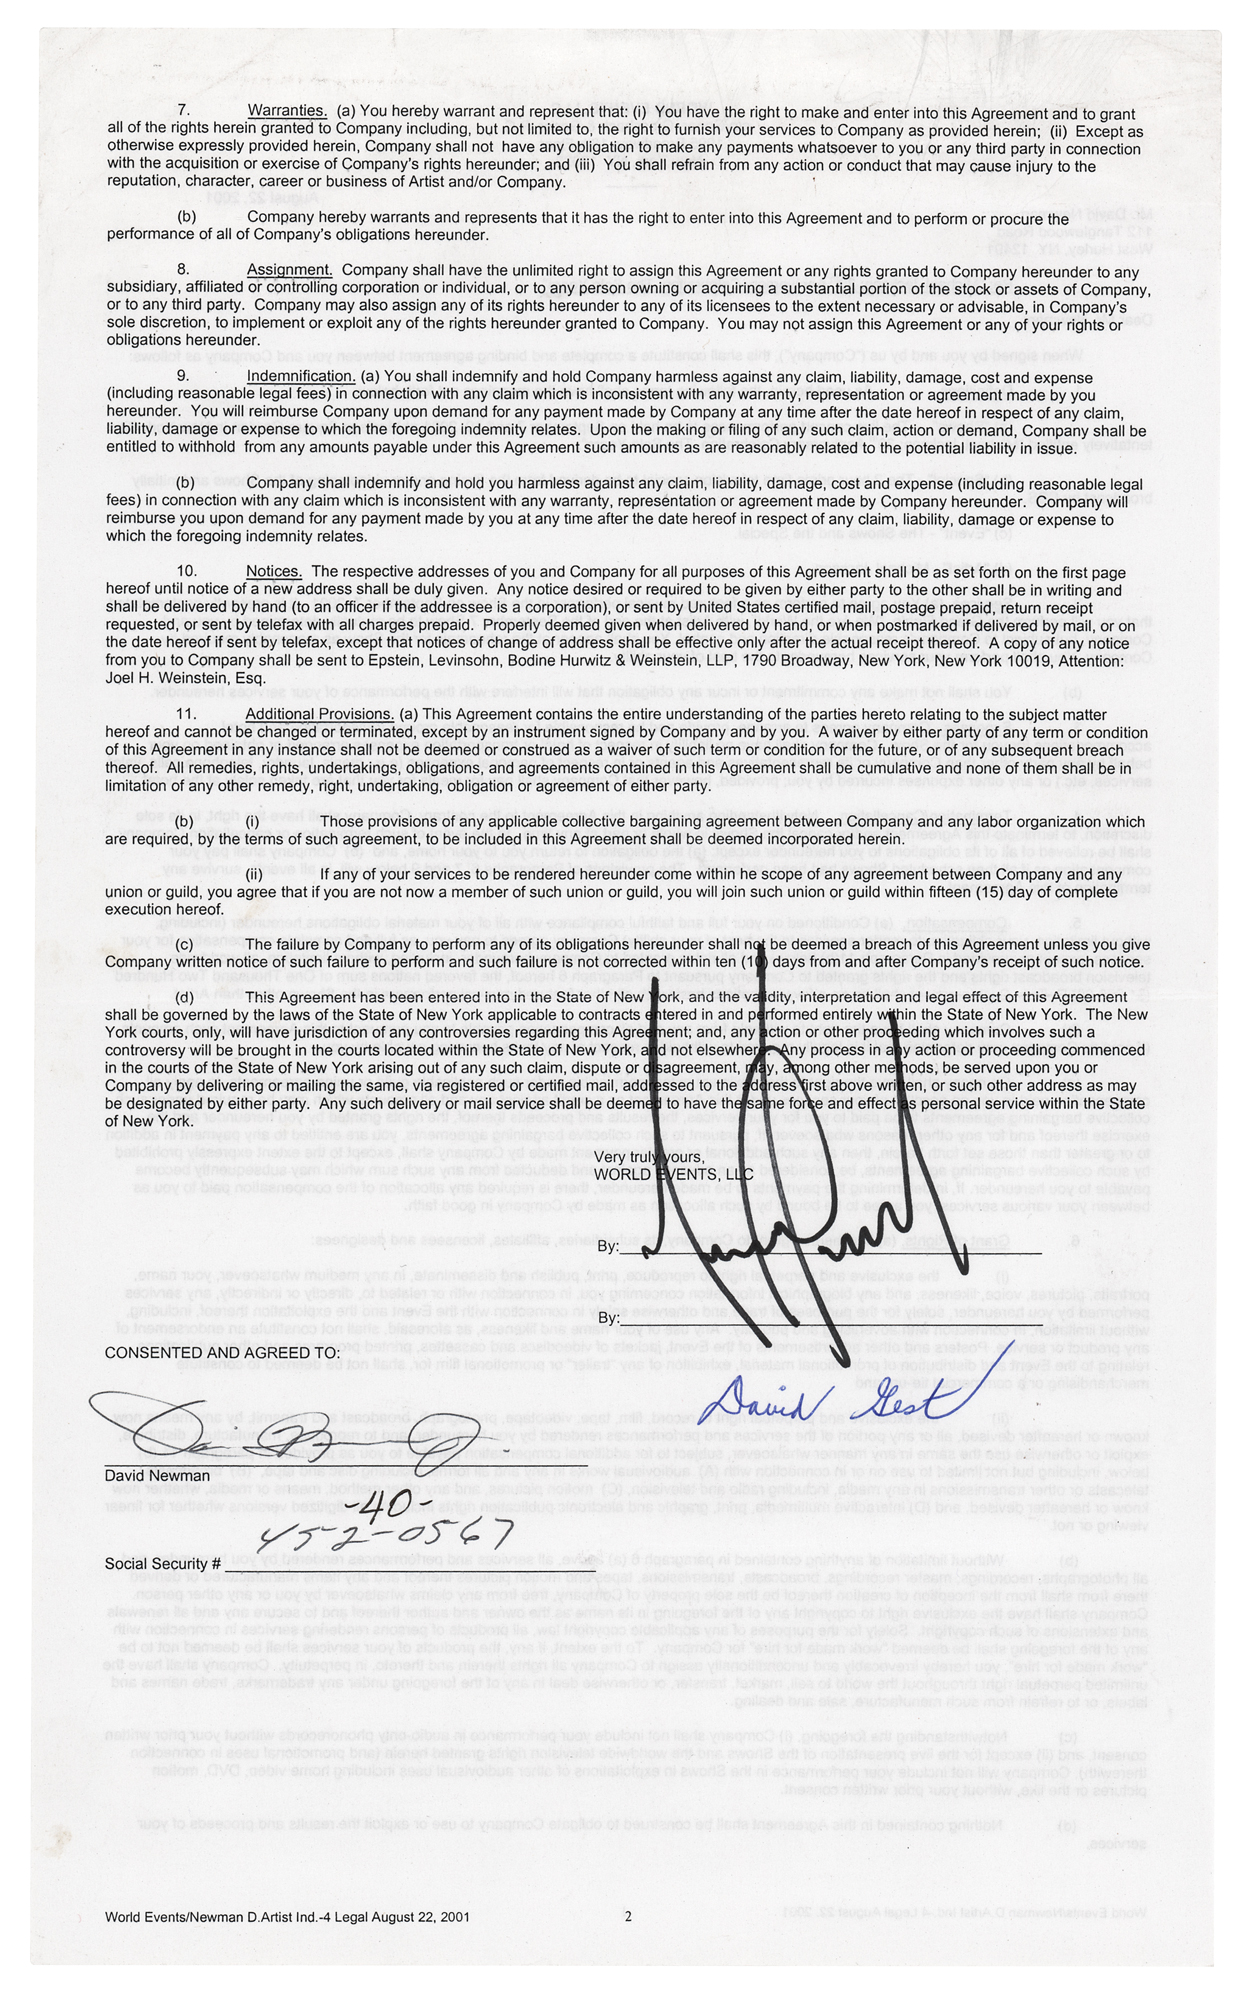 7. Warranties. (a) You hereby warrant and represent that: (i) You have the right to make and enter into this Agreement and to grant
all of the rights herein granted to Company including, but not limited to, the right to furnish your services to Company as provided herein; (ii) Except as
otherwise expressly provided herein, Company shall not have any obligation to make any payments whatsoever to you or any third party in connection
with the acquisition or exercise of Company's rights hereunder; and (iii) You shall refrain from any action or conduct that may cause injury to the
reputation, character, career or business of Artist and/or Company.
(b) Company hereby warrants and represents that it has the right to enter into this Agreement and to perform or procure the
performance of all of Company's obligations hereunder.
8. Assignment. Company shall have the unlimited right to assign this Agreement or any rights granted to Company hereunder to any
subsidiary, affiliated or controlling corporation or individual, or to any person owning or acquiring a substantial portion of the stock or assets of Company,
or to any third party. Company may also assign any of its rights hereunder to any of its licensees to the extent necessary or advisable, in Company's
sole discretion, to implement or exploit any of the rights hereunder granted to Company. You may not assign this Agreement or any of your rights or
obligations hereunder.
9. Indemnification. (a) You shall indemnify and hold Company harmless against any claim, liability, damage, cost and expense
(including reasonable legal fees) in connection with any claim which is inconsistent with any warranty, representation or agreement made by you
hereunder. You will reimburse Company upon demand for any payment made by Company at any time after the date hereof in respect of any claim,
liability, damage or expense to which the foregoing indemnity relates. Upon the making or filing of any such claim, action or demand, Company shall be
entitled to withhold from any amounts payable under this Agreement such amounts as are reasonably related to the potential liability in issue.
(b) Company shall indemnify and hold you harmless against any claim, liability, damage, cost and expense (including reasonable legal
fees) in connection with any claim which is inconsistent with any warranty, representation or agreement made by Company hereunder. Company will
reimburse you upon demand for any payment made by you at any time after the date hereof in respect of any claim, liability, damage or expense to
which the foregoing indemnity relates.
10. Notices. The respective addresses of you and Company for all purposes of this Agreement shall be as set forth on the first page
hereof until notice of a new address shall be duly given. Any notice desired or required to be given by either party to the other shall be in writing and
shall be delivered by hand (to an officer if the addressee is a corporation), or sent by United States certified mail, postage prepaid, return receipt
requested, or sent by telefax with all charges prepaid. Properly deemed given when delivered by hand, or when postmarked if delivered by mail, or on
the date hereof if sent by telefax, except that notices of change of address shall be effective only after the actual receipt thereof. A copy of any notice
from you to Company shall be sent to Epstein, Levinsohn, Bodine Hurwitz & Weinstein, LLP, 1790 Broadway, New York, New York 10019, Attention:
Joel H. Weinstein, Esq.
11. Additional Provisions. (a) This Agreement contains the entire understanding of the parties hereto relating to the subject matter
hereof and cannot be changed or terminated, except by an instrument signed by Company and by you. A waiver by either party of any term or condition
of this Agreement in any instance shall not be deemed or construed as a waiver of such term or condition for the future, or of any subsequent breach
thereof. All remedies, rights, undertakings, obligations, and agreements contained in this Agreement shall be cumulative and none of them shall be in
limitation of any other remedy, right, undertaking, obligation or agreement of either party.
(b) (i) Those provisions of any applicable collective bargaining agreement between Company and any labor organization which
are required, by the terms of such agreement, to be included in this Agreement shall be deemed incorporated herein.
(ii) If any of your services to be rendered hereunder come within he scope of any agreement between Company and any
union or guild, you agree that if you are not now a member of such union or guild, you will join such union or guild within fifteen (15) day of complete
execution hereof.
(c) The failure by Company to perform any of its obligations hereunder shall not be deemed a breach of this Agreement unless you give
Company written notice of such failure to perform and such failure is not corrected within ten (10) days from and after Company's receipt of such notice.
(d) This Agreement has been entered into in the State of New York, and the validity, interpretation and legal effect of this Agreement
shall be governed by the laws of the State of New York applicable to contracts entered in and performed entirely within the State of New York. The New
York courts, only, will have jurisdiction of any controversies regarding this Agreement; and, any action or other proceeding which involves such a
controversy will be brought in the courts located within the State of New York, and not elsewhere. Any process in any action or proceeding commenced
in the courts of the State of New York arising out of any such claim, dispute or disagreement, may, among other methods, be served upon you or
Company by delivering or mailing the same, via registered or certified mail, addressed to the address first above written, or such other address as may
be designated by either party. Any such delivery or mail service shall be deemed to have the same force and effect as personal service within the State
of New York.
Very truly yours,
WORLD EVENTS, LLC
By:
By:
CONSENTED AND AGREED TO:
David Gest
David Newman
-40-
452-0567
Social Security #
World Events/Newman D.Artist Ind.-4 Legal August 22, 2001
2